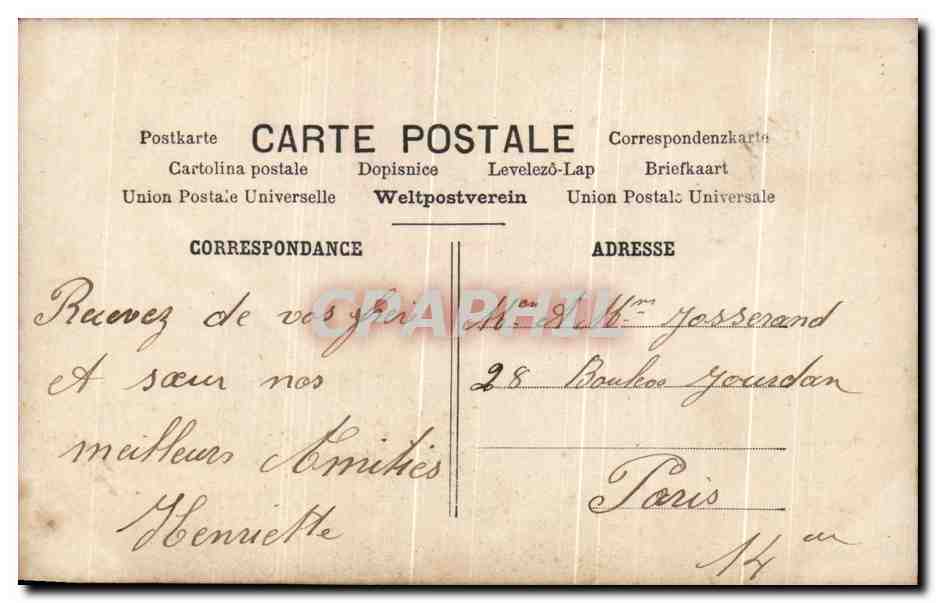 Postkarte CARTE POSTALE Correspondenzkarte
Cartolina postale Dopisnice Levelező-Lap Briefkaart
Union Postale Universelle Weltpostverein Union Postale Universale
CORRESPONDANCE
Recevez de vos
et sœur nos
meilleurs Amitiés
Henriette
ADRESSE
et Mme Josserand
28 Jourdan
Paris
14 em
CPARHIL